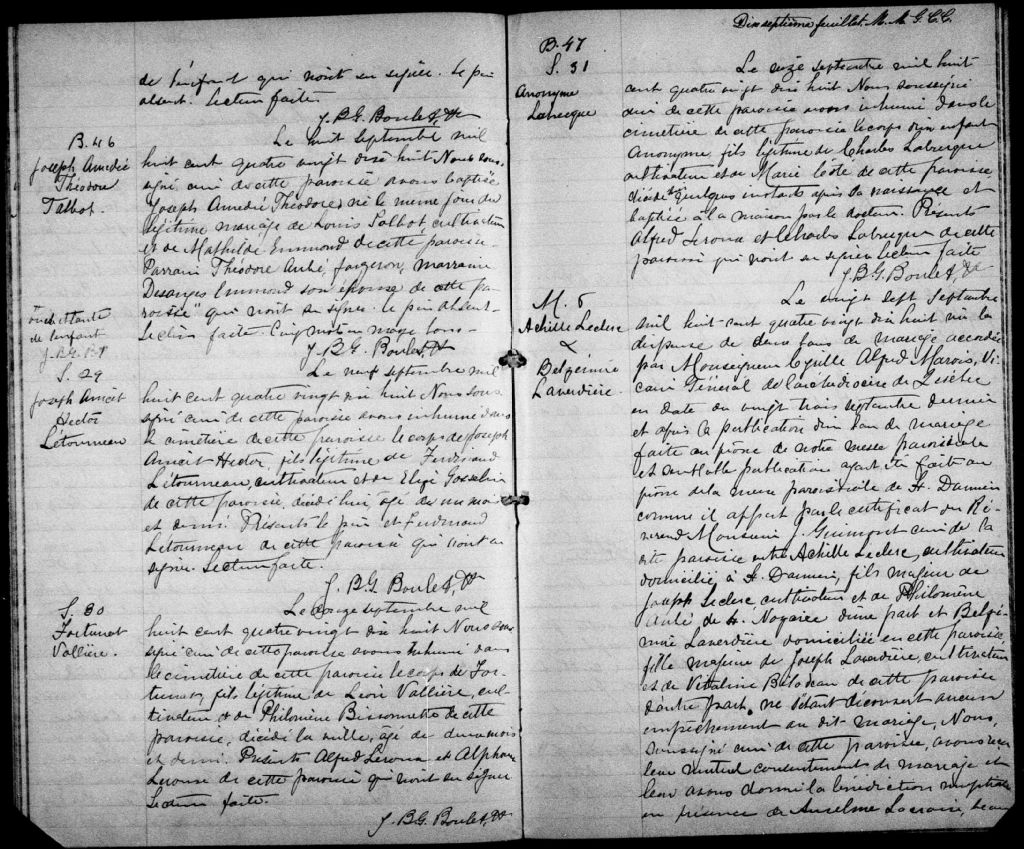 de l'enfant qui n'ont su signer. Le père
absent. Lecture faite.
J. B. G. Boulet, Ptre
B. 46
Joseph Amedée
Théodore
Talbot.
Le huit septembre mil
huit cent quatre vingt dix huit Nous sous-
signé curé de cette paroisse avons baptisé
Joseph Amedée Théodore né le même jour du
légitime mariage de Louis Talbot, cultivateur
et de Mathilde Emmond de cette paroisse
Parrain Théodore Aubé, forgeron, marraine
Desanges Emmond son épouse de cette pa-
roisse qui n'ont su signer. Le père absent
Lecture faite. Cinq mots en marge bons
J. B. G. Boulet, Ptre
de l'enfant
J. B. G. B. P
S. 29
Joseph Anicet
Hector
Létourneau
Le neuf septembre mil
huit cent quatre vingt dix huit Nous sous-
signé curé de cette paroisse avons inhumé dans
le cimetière de cette paroisse le corps de Joseph
Anicet Hector, fils légitime de Ferdinand
Létourneau, cultivateur et de Eliza Gosselin
de cette paroisse, décédé hier, âgé de un mois
et demi. Présents le père et Ferdinand
Létourneau de cette paroisse qui n'ont su
signer. Lecture faite.
J. B. G. Boulet, Ptre
S. 30
Fortunat
Vallière.
Le douze septembre mil
huit cent quatre vingt dix huit Nous sous-
signé curé de cette paroisse avons inhumé dans
le cimetière de cette paroisse le corps de For-
tunat, fils légitime de Léon Vallière, cul-
tivateur et de Philomène Bissonnette de cette
paroisse, décédé la veille, âgé de deux mois
et demi. Présents Alfred Leroux et Alphonse
Leroux de cette paroisse qui n'ont su signer
Lecture faite.
J. B. G. Boulet, Ptre
Dix septième feuillet. M. M. G. C. C.
B. 47
S. 31
Anonyme
Labrecque
Le seize septembre mil huit
cent quatre vingt dix huit Nous soussigné
curé de cette paroisse avons inhumé dans le
cimetière de cette paroisse le corps d'un enfant
Anonyme, fils légitime de Charles Labrecque
cultivateur et de Marie Côté de cette paroisse
décédé quelques instants après sa naissance et
baptisé à la maison par le docteur. Présents
Alfred Leroux et Charles Labrecque de cette
paroisse qui n'ont su signer Lecture faite
J. B. G. Boulet, Ptre
M. 6
Achille Leclerc
&
Belgémire
Laverdière
Le vingt sept septembre
mil huit cent quatre vingt dix huit vu la
dispense de deux bans de mariage accordée
par Monseigneur Cyrille Alfred Marois, Vi-
caire Général de l'archidiocèse de Québec
en date du vingt trois septembre dernier
et après la publication d'un ban de mariage
faite au prône de notre messe paroissiale
et semblable publication ayant été faite au
prône de la messe paroissiale de St. Damien
comme il appert par le certificat du Ré-
vérend Monsieur J. Guimont curé de la
dite paroisse entre Achille Leclerc, cultivateur
domicilié à St. Damien, fils majeur de
Joseph Leclerc, cultivateur et de Philomène
Aubé de St. Nazaire d'une part et Belgé-
mire Laverdière domiciliée en cette paroisse,
fille majeure de Joseph Laverdière, cultivateur
et de Vitaline Bilodeau de cette paroisse
d'autre part. ne s'étant découvert aucun
empêchement au dit mariage, Nous,
soussigné curé de cette paroisse, avons reçu
leur mutuel consentement de mariage et
leur avons donné la bénédiction nuptiale
en présence de Anselme Lacroix,